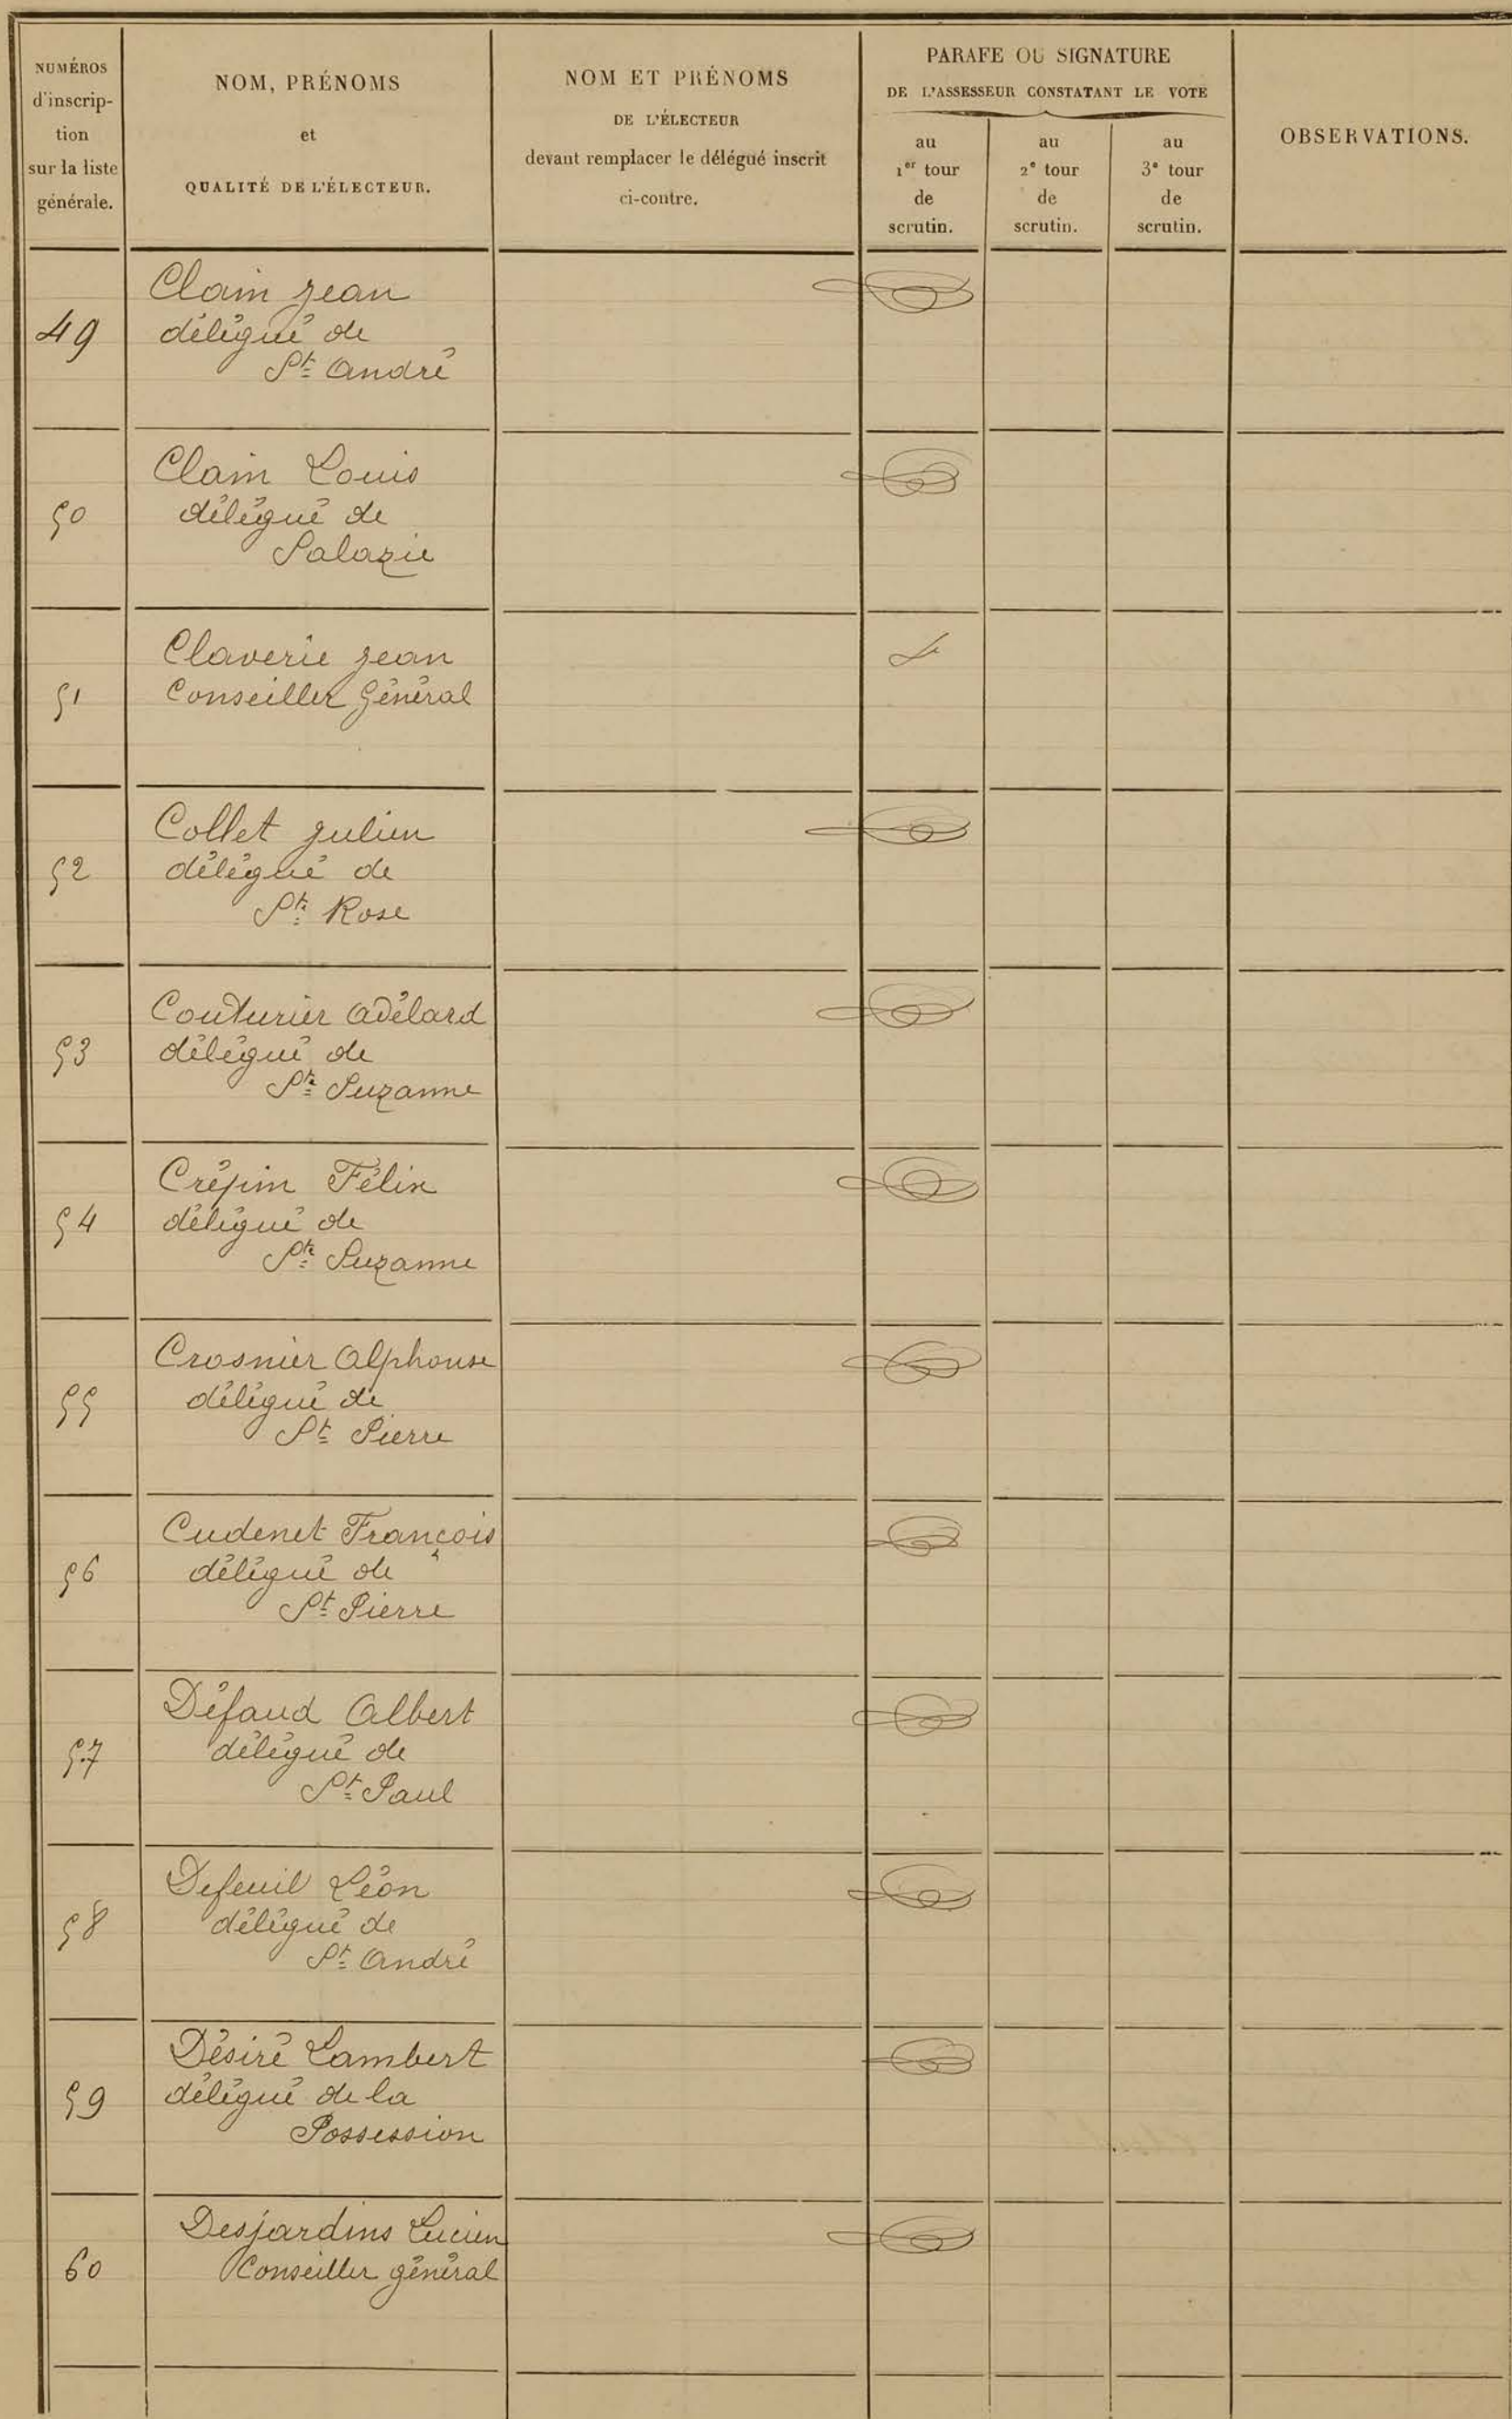 NUMÉROS
d'inscrip-
tion
sur la liste
générale.
NOM, PRÉNOMS
et
QUALITÉ DE L'ÉLECTEUR.
NOM ET PRÉNOMS
DE L'ÉLECTEUR
devant remplacer le délégué inscrit
ci-contre.
PARAFE OU SIGNATURE
DE L'ASSESSEUR CONSTATANT LE VOTE
au
1er tour
de
scrutin.
au
2e tour
de
scrutin.
au
3e tour
de
scrutin.
OBSERVATIONS.
49
Clain Jean
délégué de
St André
50
Clain Louis
délégué de
Salazie
51
Claverie Jean
Conseiller Général
52
Collet Julien
délégué de
Ste Rose
53
Couturier Adélard
délégué de
Ste Suzanne
54
Crépin Félix
délégué de
Ste Suzanne
55
Crosnier Alphonse
délégué de
St Pierre
56
Cudenet François
délégué de
St Pierre
57
Défaud Albert
délégué de
St Paul
58
Defeuil Léon
délégué de
St André
59
Désiré Lambert
délégué de la
Possession
60
Desjardins Lucien
Conseiller général